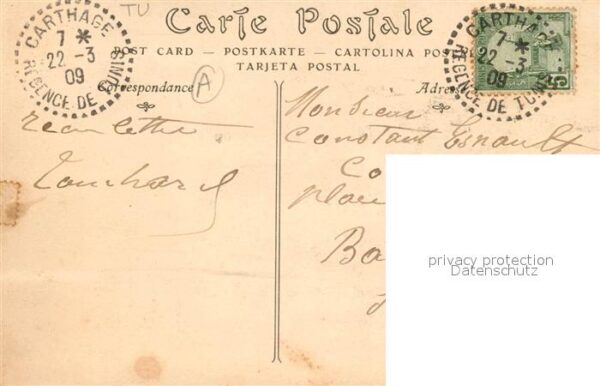 TU
Carte Postale
POST CARD — POSTKARTE — CARTOLINA POS
TARJETA POSTAL
CARTHAGE
7 *
22 - 3
09
REGENCE DE TUNIS
CARTHAGE
7 *
22 - 3
09
REGENCE DE TUNIS
5
Correspondance
A
Adres
Monsieur
Constant Esnault
Co
Place
Ba
reçu lettre
Touchard
privacy protection
Datenschutz